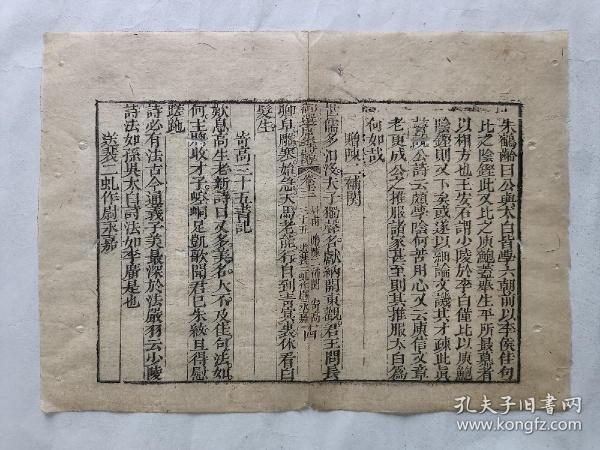 朱鶴齡曰公與太白皆學六朝前以李侯佳句
比之陰鏗此又比之庾鮑蓋舉生平所最慕者
以相方也王安石謂少陵於李白僅比以庾鮑
陰鏗則又下矣或遂以細論文譏其才疎此真
公詩云頗學陰何苦用心又云庾信文章
老更成公之推服諸家甚至則其推服太白為
何如哉
贈陳二補闕
世儒多汩沒夫子獨聲名獻納開東觀君王問長
卿皂鵰寒始急天馬老能行自到青冥裏休看白
髮生
寄高三十五書記
歎息高生老新詩日又多美名人不及佳句法如
何主將收才子崆峒足凱歌聞君已朱紱且得慰
蹉跎
詩必有法古今通義子美最深於法嚴羽云少陵
詩法如孫吳太白詩法如李廣是也
送裴二虬作尉永嘉
孔夫子旧书网
www.kongfz.com